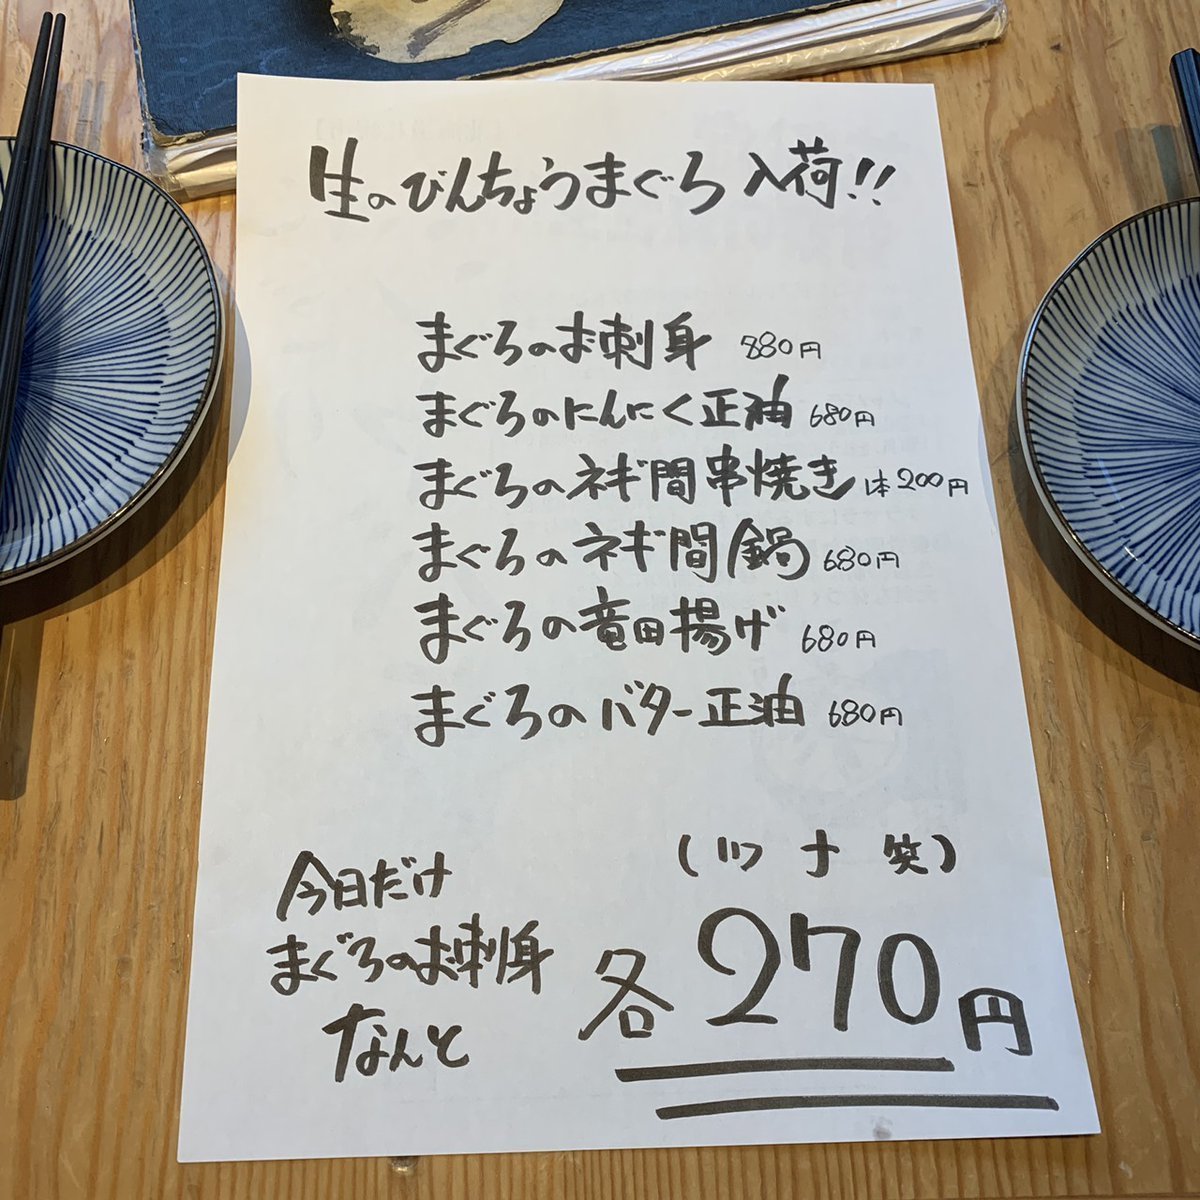 生のびんちょうまぐろ入荷!!
まぐろのお刺身 880円
まぐろのにんにく正油 680円
まぐろのネギ間串焼き 1本200円
まぐろのネギ間鍋 680円
まぐろの竜田揚げ 680円
まぐろのバター正油 680円
(ツナ笑)
今日だけ
まぐろのお刺身
なんと
各270円